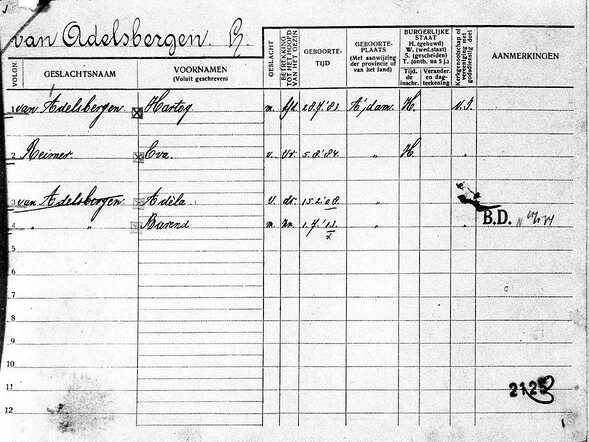 van Adelsbergen. B.
VOLGN. GESLACHTSNAAM VOORNAMEN (Voluit geschreven) GESLACHT BETREKKING TOT HET HOOFD VAN HET GEZIN GEBOORTE-TIJD GEBOORTE-PLAATS (Met aanwijzing der provincie of van het land) BURGERLIJKE STAAT H. (gehuwd) W. (wed.staat) S. (gescheiden) T. (ontb. na s j.) Tijd. de inschr. Verander- en dag-teekening Kerkgenootschap of vereeniging met godsdienstig doel AANMERKINGEN
1 van Adelsbergen Hartog m. hfd 28.7.'83. A'dam. H. N.I.
2 Reimer. Eva. v. vr. 5.8.'84. " H. "
3 van Adelsbergen. Adèla. v. dr. 15.2.'08. "
4 " " Barend m. zn. 1.7.'13. " B.D.
5
6
7
8
9
10
11 2125
12